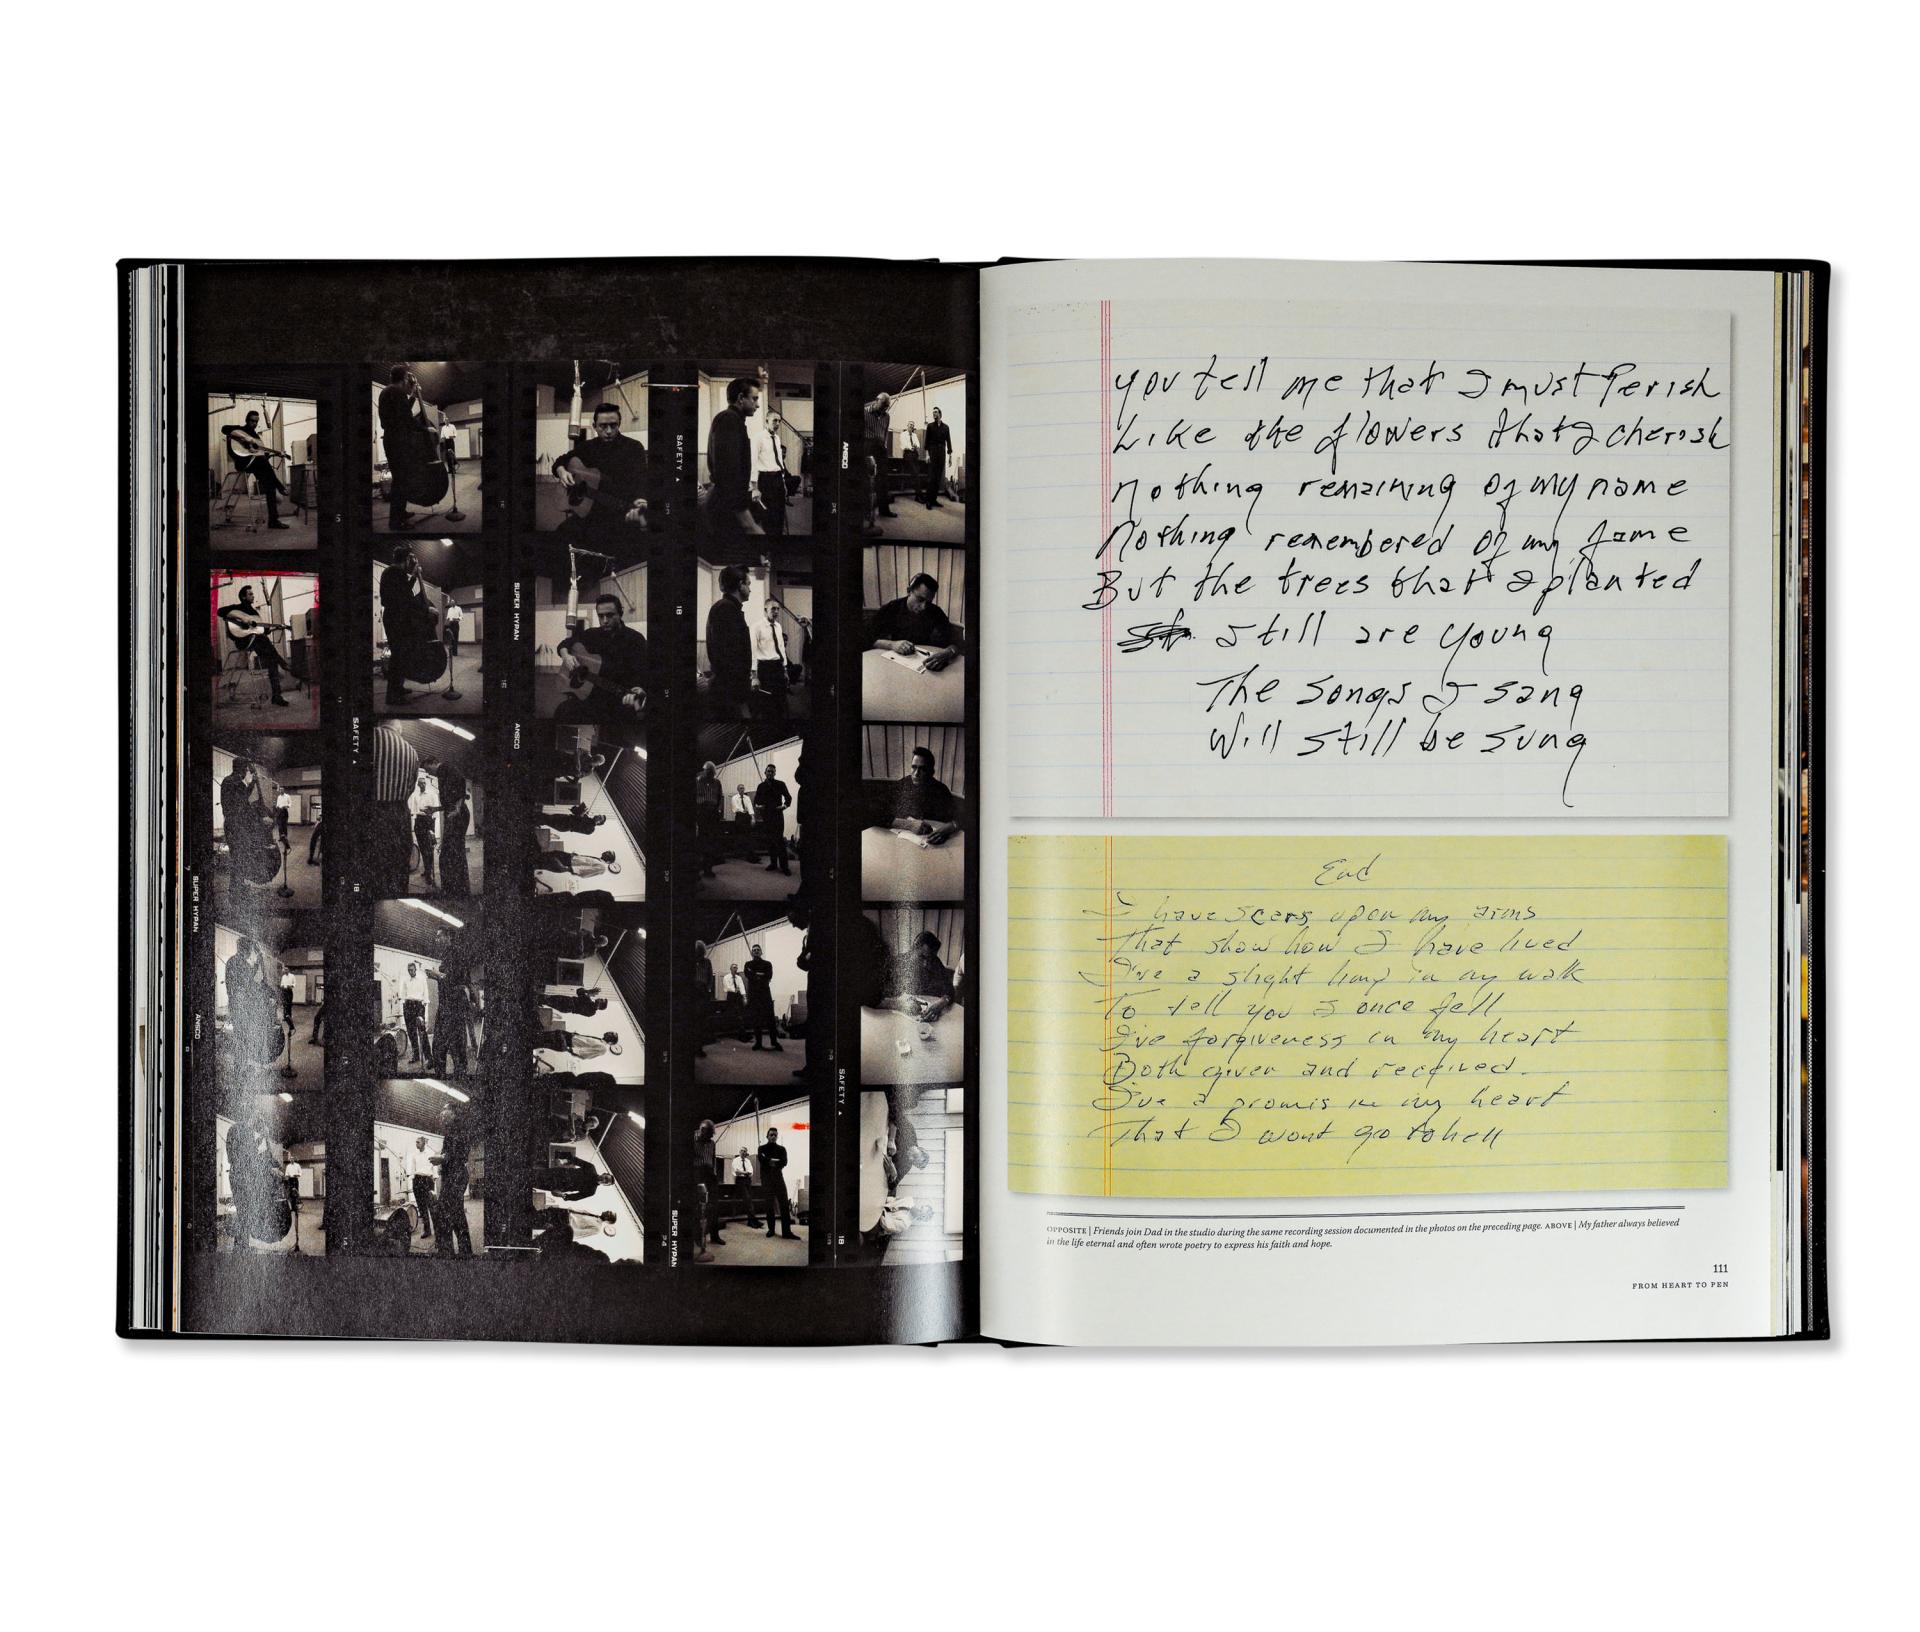 SAFETY
ANSCO
SUPER HYPAN
18
SAFETY
ANSCO
18
SUPER HYPAN
SAFETY
ANSCO
SUPER HYPAN
24
18
you tell me that I must Perish
Like the flowers that I cherish
nothing remaining of my name
Nothing remembered of my fame
But the trees that I planted
still are young
The songs I sang
Will still be sung
End
I have scars upon my arms
That show how I have lived
I've a slight limp in my walk
To tell you I once fell
I've forgiveness in my heart
Both given and received.
I've a promis in my heart
That I wont go to hell
OPPOSITE | Friends join Dad in the studio during the same recording session documented in the photos on the preceding page. ABOVE | My father always believed
in the life eternal and often wrote poetry to express his faith and hope.
111
FROM HEART TO PEN